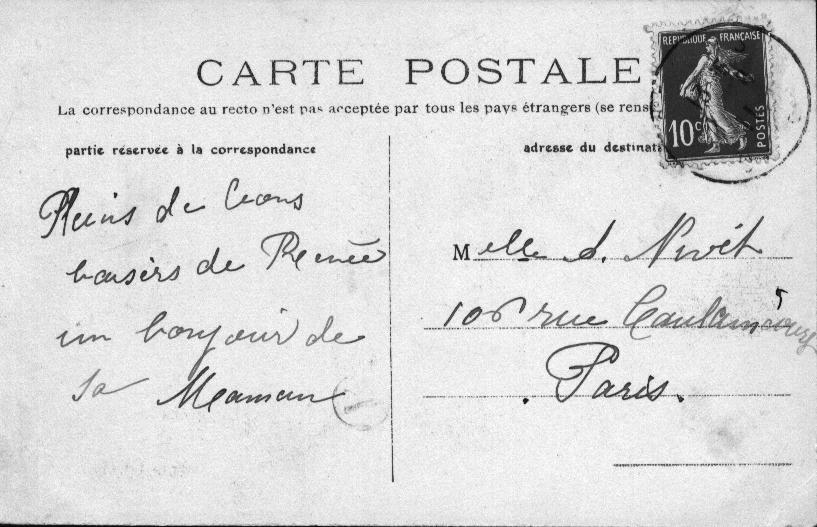 CARTE POSTALE
RÉPUBLIQUE FRANÇAISE
10c
POSTES
La correspondance au recto n'est pas acceptée par tous les pays étrangers (se rens
partie réservée à la correspondance
adresse du destinat
Pleins de bons
baisers de Renée
un bonjour de
sa Maman
Melle S. Nivét
106 rue Caulaincourt
Paris.